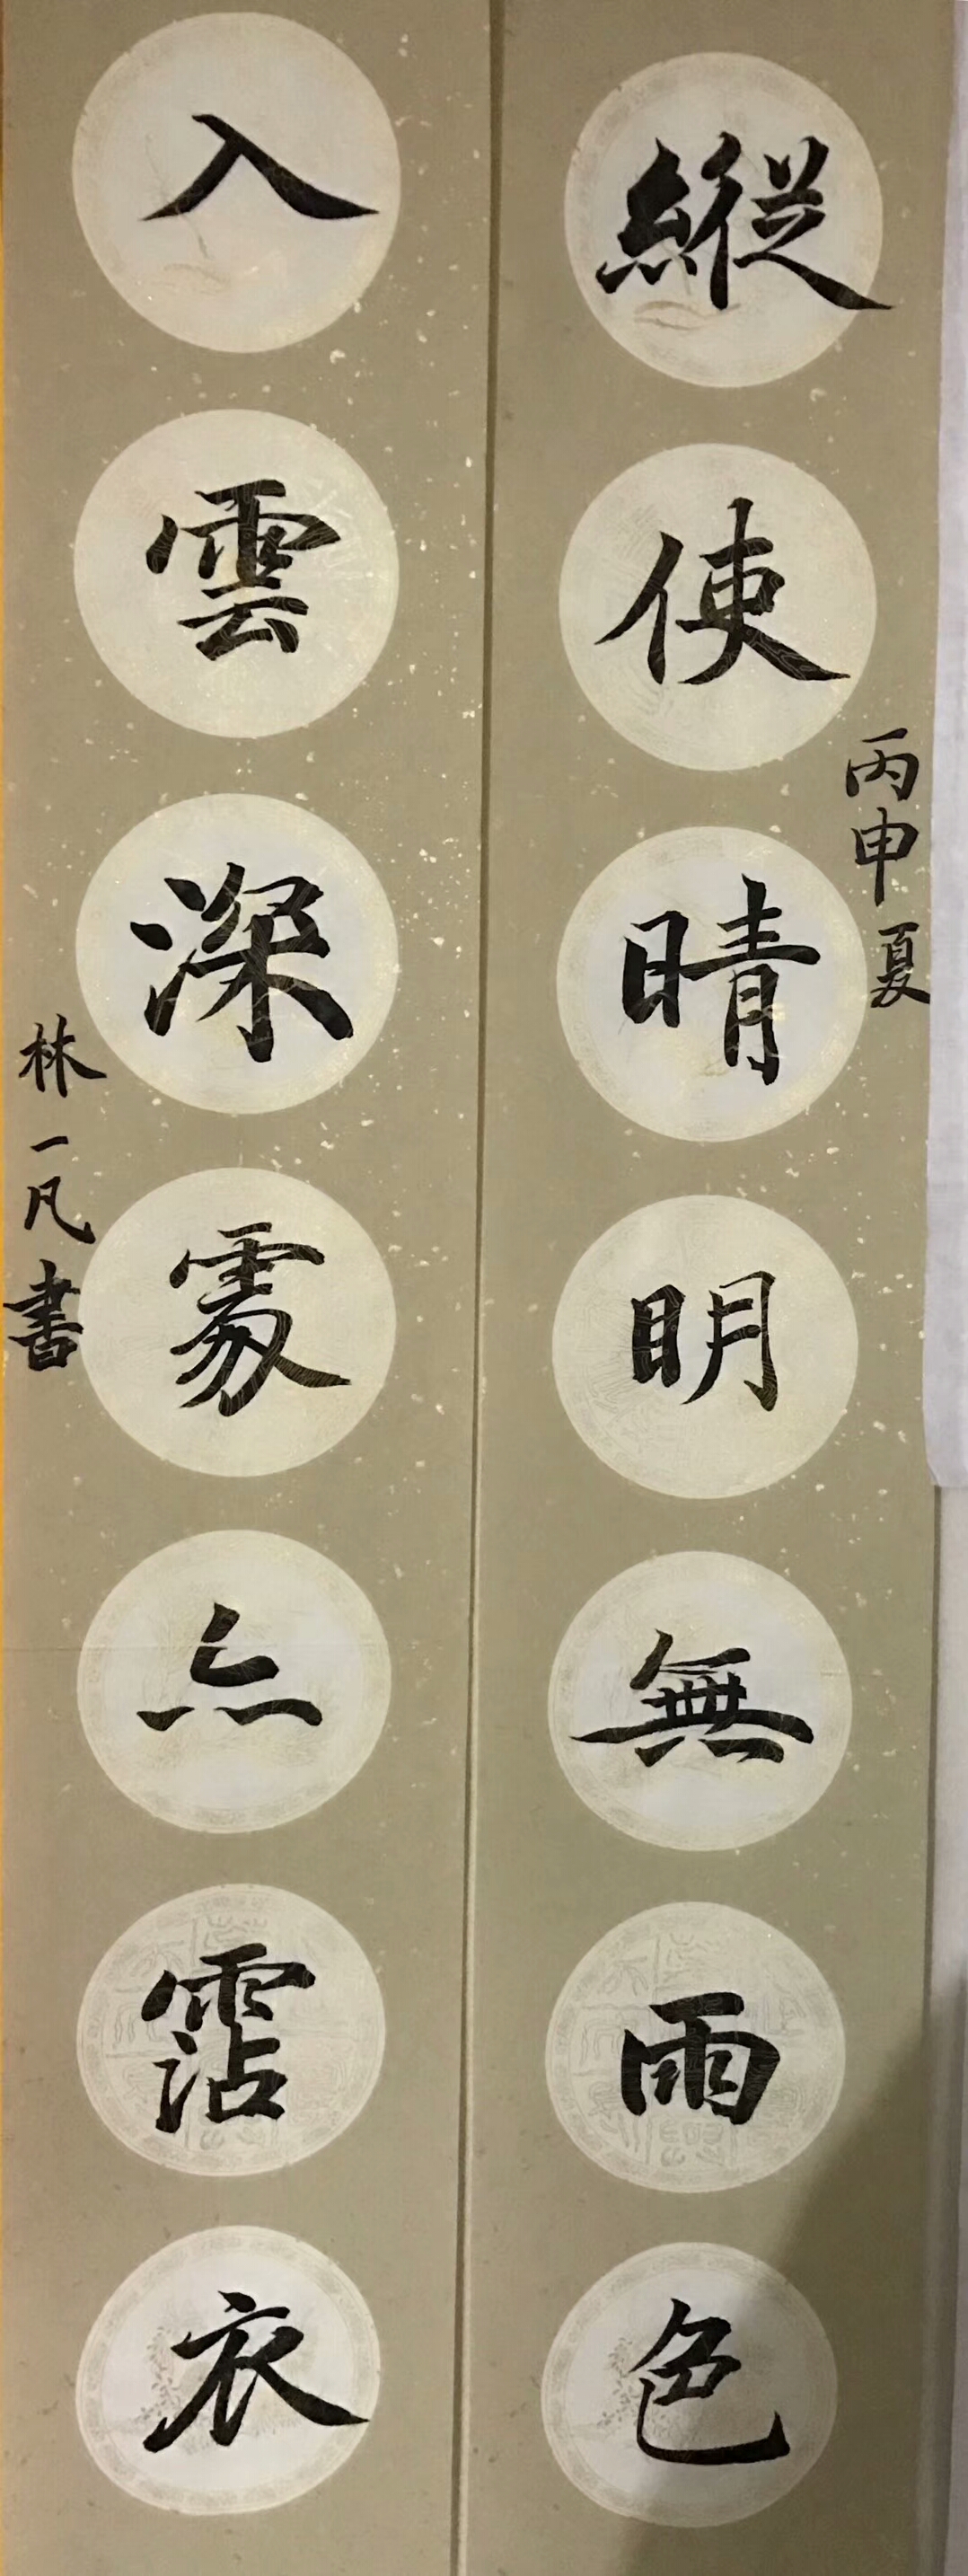 丙申夏
縱使晴明無雨色
入雲深處亦霑衣
林一凡書